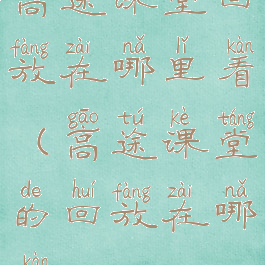 高途课堂回
fàng zài nǎ lǐ kàn
放在哪里看
gāo tú kè táng
（高途课堂
de huí fàng zài nǎ
的回放在哪
kàn